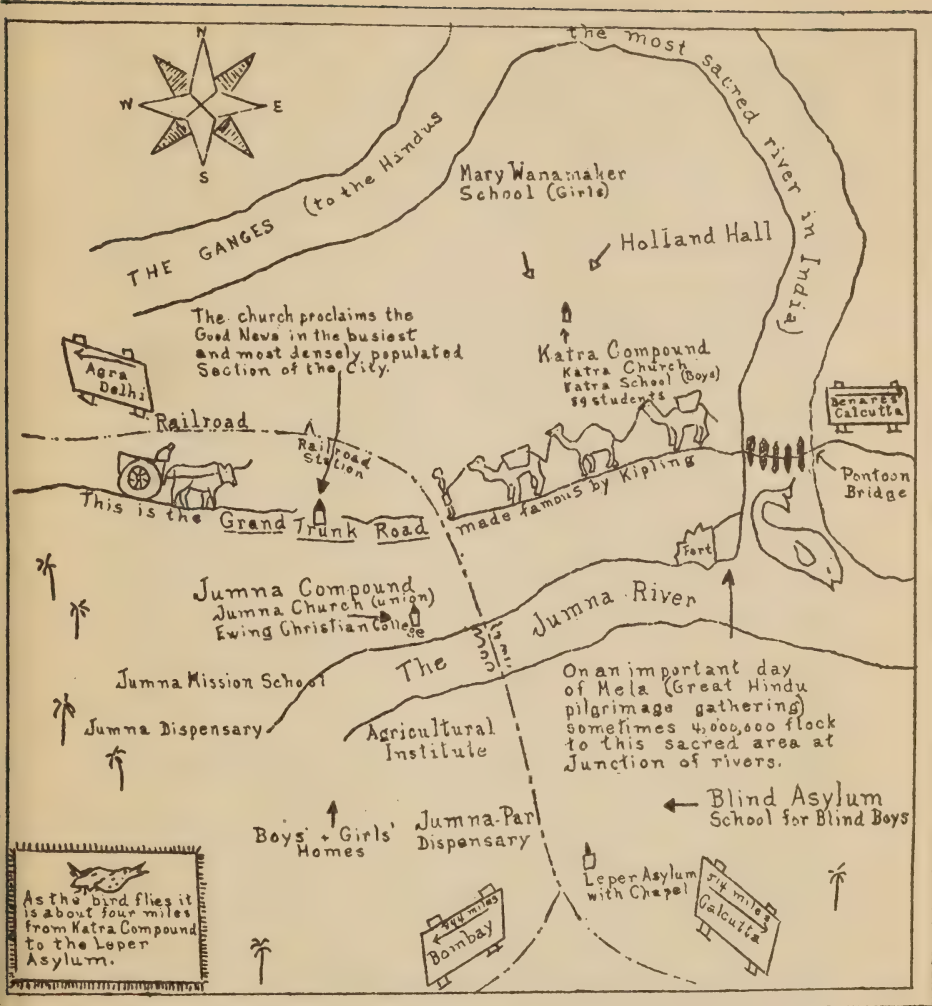 N
W
E
S
THE GANGES (to the Hindus
the most sacred river in India)
Mary Wanamaker
School (Girls)
Holland Hall
The church proclaims the
Good News in the busiest
and most densely populated
Section of the City.
Katra Compound
Katra Church
Katra School (Boys)
89 students
Agra
Delhi
Benares
Calcutta
Railroad
Railroad
Station
Pontoon
Bridge
This is the Grand Trunk Road made famous by Kipling
Fort
Jumna Compound
Jumna Church (union)
Ewing Christian College
The Jumna River
Jumna Mission School
Jumna Dispensary
Agricultural
Institute
On an important day
of Mela (Great Hindu
pilgrimage gathering)
sometimes 4,000,000 flock
to this sacred area at
Junction of rivers.
Boys' + Girls'
Homes
Jumna-Par
Dispensary
Blind Asylum
School for Blind Boys
Leper Asylum
with Chapel
844 miles
Bombay
514 miles
Calcutta
As the bird flies it
is about four miles
from Katra Compound
to the Leper
Asylum.